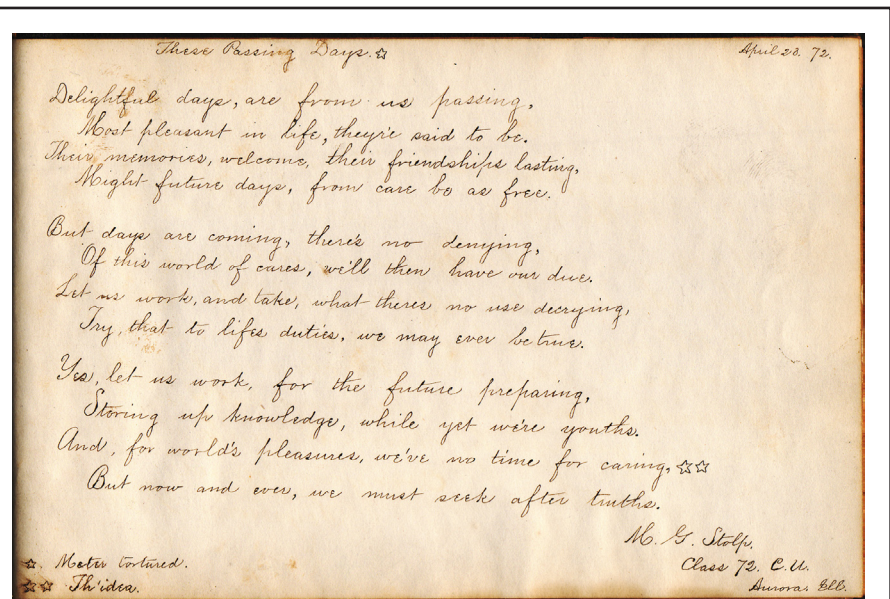 These Passing Days.☆
April 23. 72.
Delightful days, are from us passing,
Most pleasant in life, they're said to be.
Their memories, welcome, their friendships lasting,
Might future days, from care be as free.
But days are coming, there's no denying,
Of this world of cares, we'll then have our due.
Let us work, and take, what theres no use decrying,
Try, that to lifes duties, we may ever be true.
Yes, let us work, for the future preparing,
Storing up knowledge, while yet we're youths.
And, for world's pleasures, we've no time for caring, ☆☆
But now and ever, we must seek after truths.
M. G. Stolp.
Class 72. C. U.
Aurora. Ill.
☆. Meter tortured.
☆☆ Th'idea.